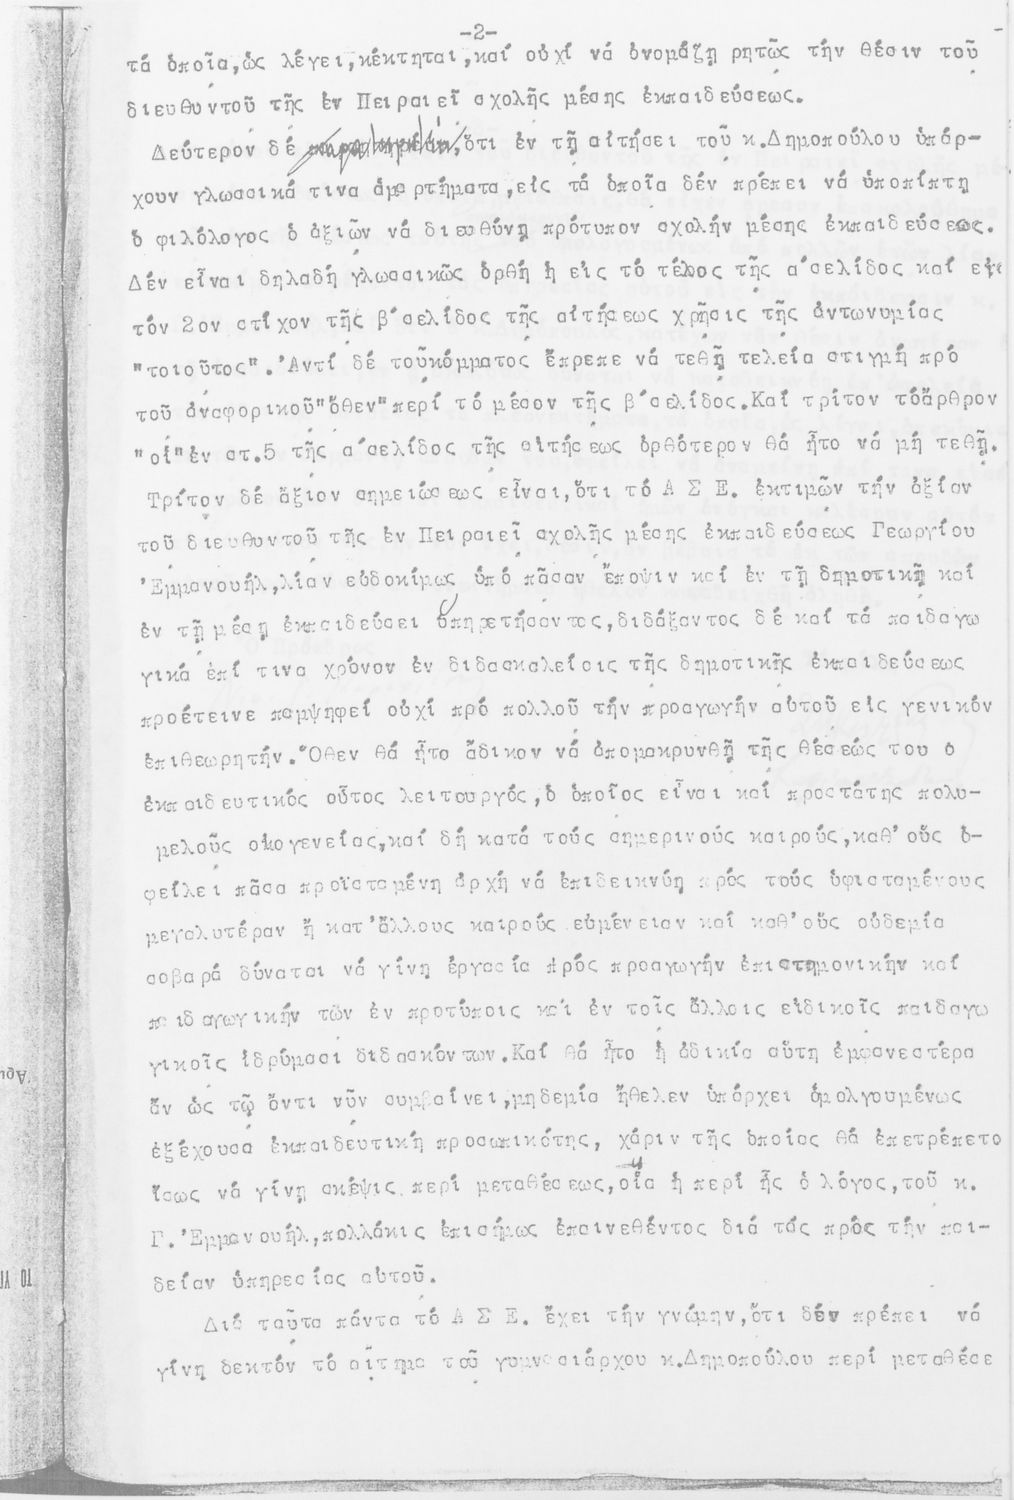 -2-
τά ὁποῖα,ὡς λέγει,κέκτηται,καί οὐχί νά ὀνομάζῃ ρητῶς τήν θέσιν τοῦ
διευθυντοῦ τῆς ἐν Πειραιεῖ σχολῆς μέσης ἐκπαιδεύσεως.
Δεύτερον δέ ,ὅτι ἐν τῇ αἰτήσει τοῦ κ.Δημοπούλου ὑπάρ-
χουν γλωσσικά τινα ἁμαρτήματα,εἰς τά ὁποῖα δέν πρέπει νά ὑποπίπτῃ
ὁ φιλόλογος ὁ ἀξιῶν νά διευθύνῃ πρότυπον σχολήν μέσης ἐκπαιδεύσεως.
Δέν εἶναι δηλαδή γλωσσικῶς ὀρθή ἡ εἰς τό τέλος τῆς α΄σελίδος καί εἰς
τόν 2ον στίχον τῆς β΄σελίδος τῆς αἰτήσεως χρῆσις τῆς ἀντωνυμίας
"τοιοῦτος".Ἀντί δέ τοῦκόμματος ἔπρεπε νά τεθῇ τελεία στιγμή πρό
τοῦ ἀναφορικοῦ"ὅθεν"περί τό μέσον τῆς β΄σελίδος.Καί τρίτον τόἄρθρον
"οἱ"ἐν στ.5 τῆς α΄σελίδος τῆς αἰτήσεως ὀρθότερον θά ἦτο νά μή τεθῇ.
Τρίτον δέ ἄξιον σημειώσεως εἶναι,ὅτι τό Α Σ Ε. ἐκτιμῶν τήν ἀξίαν
τοῦ διευθυντοῦ τῆς ἐν Πειραιεῖ σχολῆς μέσης ἐκπαιδεύσεως Γεωργίου
Ἐμμανουήλ,λίαν εὐδοκίμως ὑπό πᾶσαν ἔποψιν καί ἐν τῇ δημοτικῇ καί
ἐν τῇ μέσῃ ἐκπαιδεύσει ὑπηρετήσαντος,διδάξαντος δέ καί τά παιδαγω
γικά ἐπί τινα χρόνον ἐν διδασκαλείοις τῆς δημοτικῆς ἐκπαιδεύσεως
προέτεινε παμψηφεί οὐχί πρό πολλοῦ τήν προαγωγήν αὐτοῦ εἰς γενικόν
ἐπιθεωρητήν.Ὅθεν θά ἦτο ἄδικον νά ἀπομακρυνθῇ τῆς θέσεώς του ὁ
ἐκπαιδευτικός οὗτος λειτουργός,ὁ ὁποῖος εἶναι καί προστάτης πολυ-
μελοῦς οἰκογενείας,καί δή κατά τούς σημερινούς καιρούς,καθ'οὕς ὀ-
φείλει πᾶσα προϊσταμένη ἀρχή νά ἐπιδεικνύῃ πρός τούς ὑφισταμένους
μεγαλυτέραν ἤ κατ'ἄλλους καιρούς εὐμένειαν καί καθ'οὕς οὐδεμία
σοβαρά δύναται νά γίνῃ ἐργασία πρός προαγωγήν ἐπιστημονικήν καί
παιδαγωγικήν τῶν ἐν προτύποις καί ἐν τοῖς ἄλλοις εἰδικοῖς παιδαγω
γικοῖς ἱδρύμασι διδασκόντων.Καί θά ἦτο ἡ ἀδικία αὕτη ἐμφανεστέρα
ἄν ὡς τῷ ὄντι νῦν συμβαίνει,μηδεμία ἤθελεν ὑπάρχει ὁμολγουμένως
ἐξέχουσα ἐκπαιδευτική προσωπικότης, χάριν τῆς ὁποίας θά ἐπετρέπετο
ἴσως νά γίνῃ σκέψις περί μεταθέσεως,οἵα ἡ περί ἧς ὁ λόγος,τοῦ κ.
Γ.Ἐμμανουήλ,πολλάκις ἐπισήμως ἐπαινεθέντος διά τάς πρός τήν παι-
δείαν ὑπηρεσίας αὐτοῦ.
Διά ταῦτα πάντα τό Α Σ Ε. ἔχει τήν γνώμην,ὅτι δέν πρέπει νά
γίνῃ δεκτόν τό αἴτημα τοῦ γυμνασιάρχου κ.Δημοπούλου περί μεταθέσε